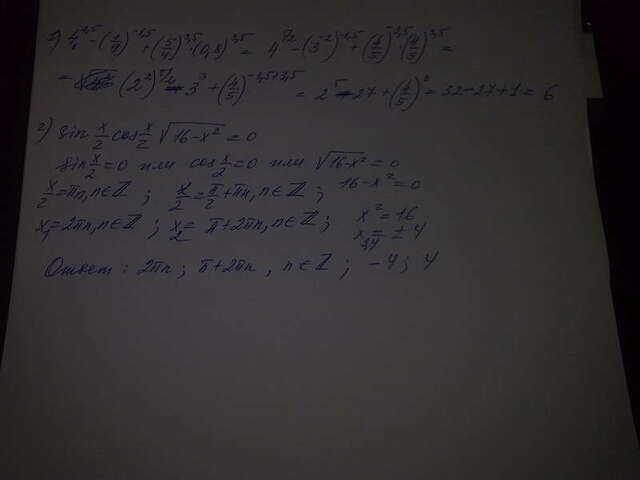 1) 4^2,5 - (1/9)^-1,5 + (5/4)^3,5 · (0,8)^3,5 = 4^5/2 - (3^-2)^-1,5 + (4/5)^-3,5 · (4/5)^3,5 =
= (2^2)^5/2 - 3^3 + (4/5)^-3,5+3,5 = 2^5 - 27 + (4/5)^0 = 32-27+1 = 6
2) sin x/2 cos x/2 √16-x^2 = 0
sin x/2 = 0 или cos x/2 = 0 или √16-x^2 = 0
x/2 = πn, n∈Z ; x/2 = π/2 + πn, n∈Z ; 16-x^2 = 0
x1 = 2πn, n∈Z ; x2 = π+2πn, n∈Z ; x^2 = 16
x3,4 = ± 4
Ответ : 2πn ; π+2πn , n∈Z ; -4 ; 4